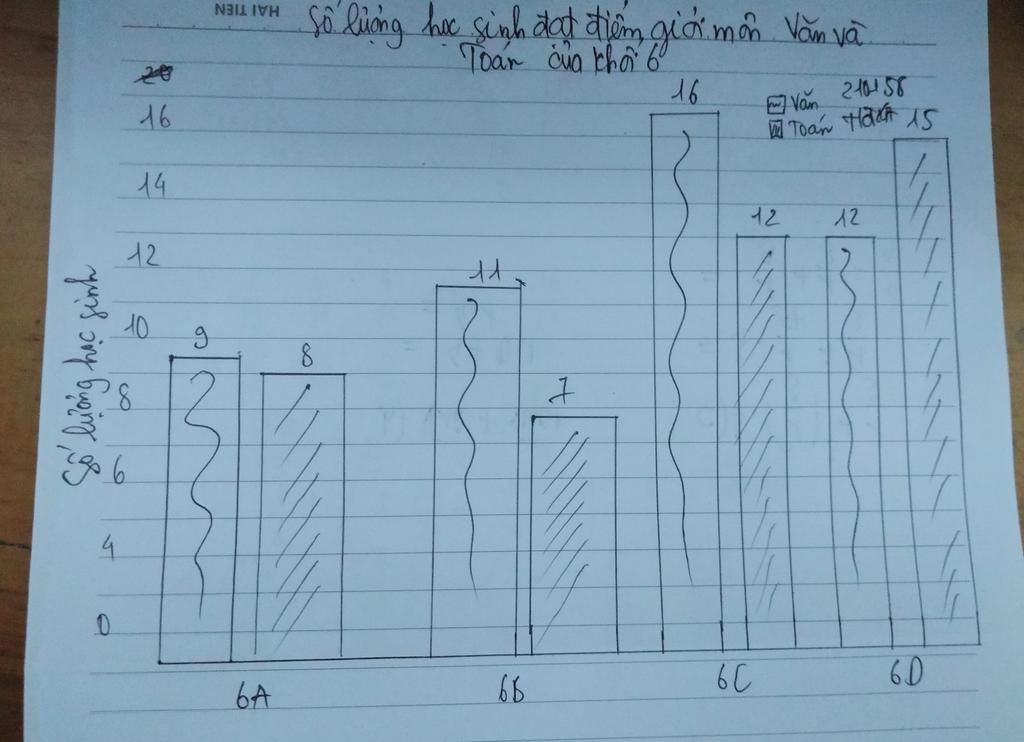 HAI TIEN
Số lượng học sinh đạt điểm giỏi môn Văn và
Toán của khối 6
20
16
14
12
10
8
6
4
0
Số lượng học sinh
Văn
Toán
9
8
11
7
16
12
12
15
6A
6B
6C
6D